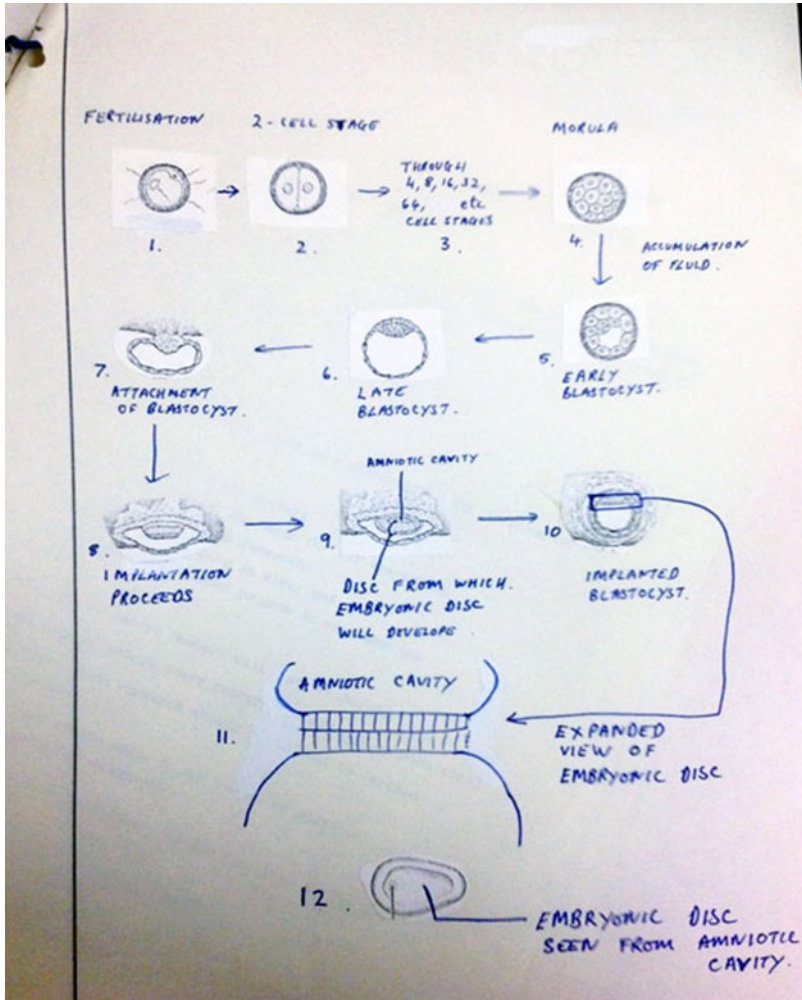 FERTILISATION
2-CELL STAGE
MORULA
THROUGH
4, 8, 16, 32,
64, etc
CELL STAGES
1.
2.
3.
4.
ACCUMULATION
OF FLUID.
7.
ATTACHMENT
OF BLASTOCYST.
6.
LATE
BLASTOCYST.
5.
EARLY
BLASTOCYST.
AMNIOTIC CAVITY
8.
IMPLANTATION
PROCEEDS
9.
DISC FROM WHICH
EMBRYONIC DISC
WILL DEVELOPE
10
IMPLANTED
BLASTOCYST.
AMNIOTIC CAVITY
11.
EXPANDED
VIEW OF
EMBRYONIC DISC
12.
EMBRYONIC DISC
SEEN FROM AMNIOTIC
CAVITY.